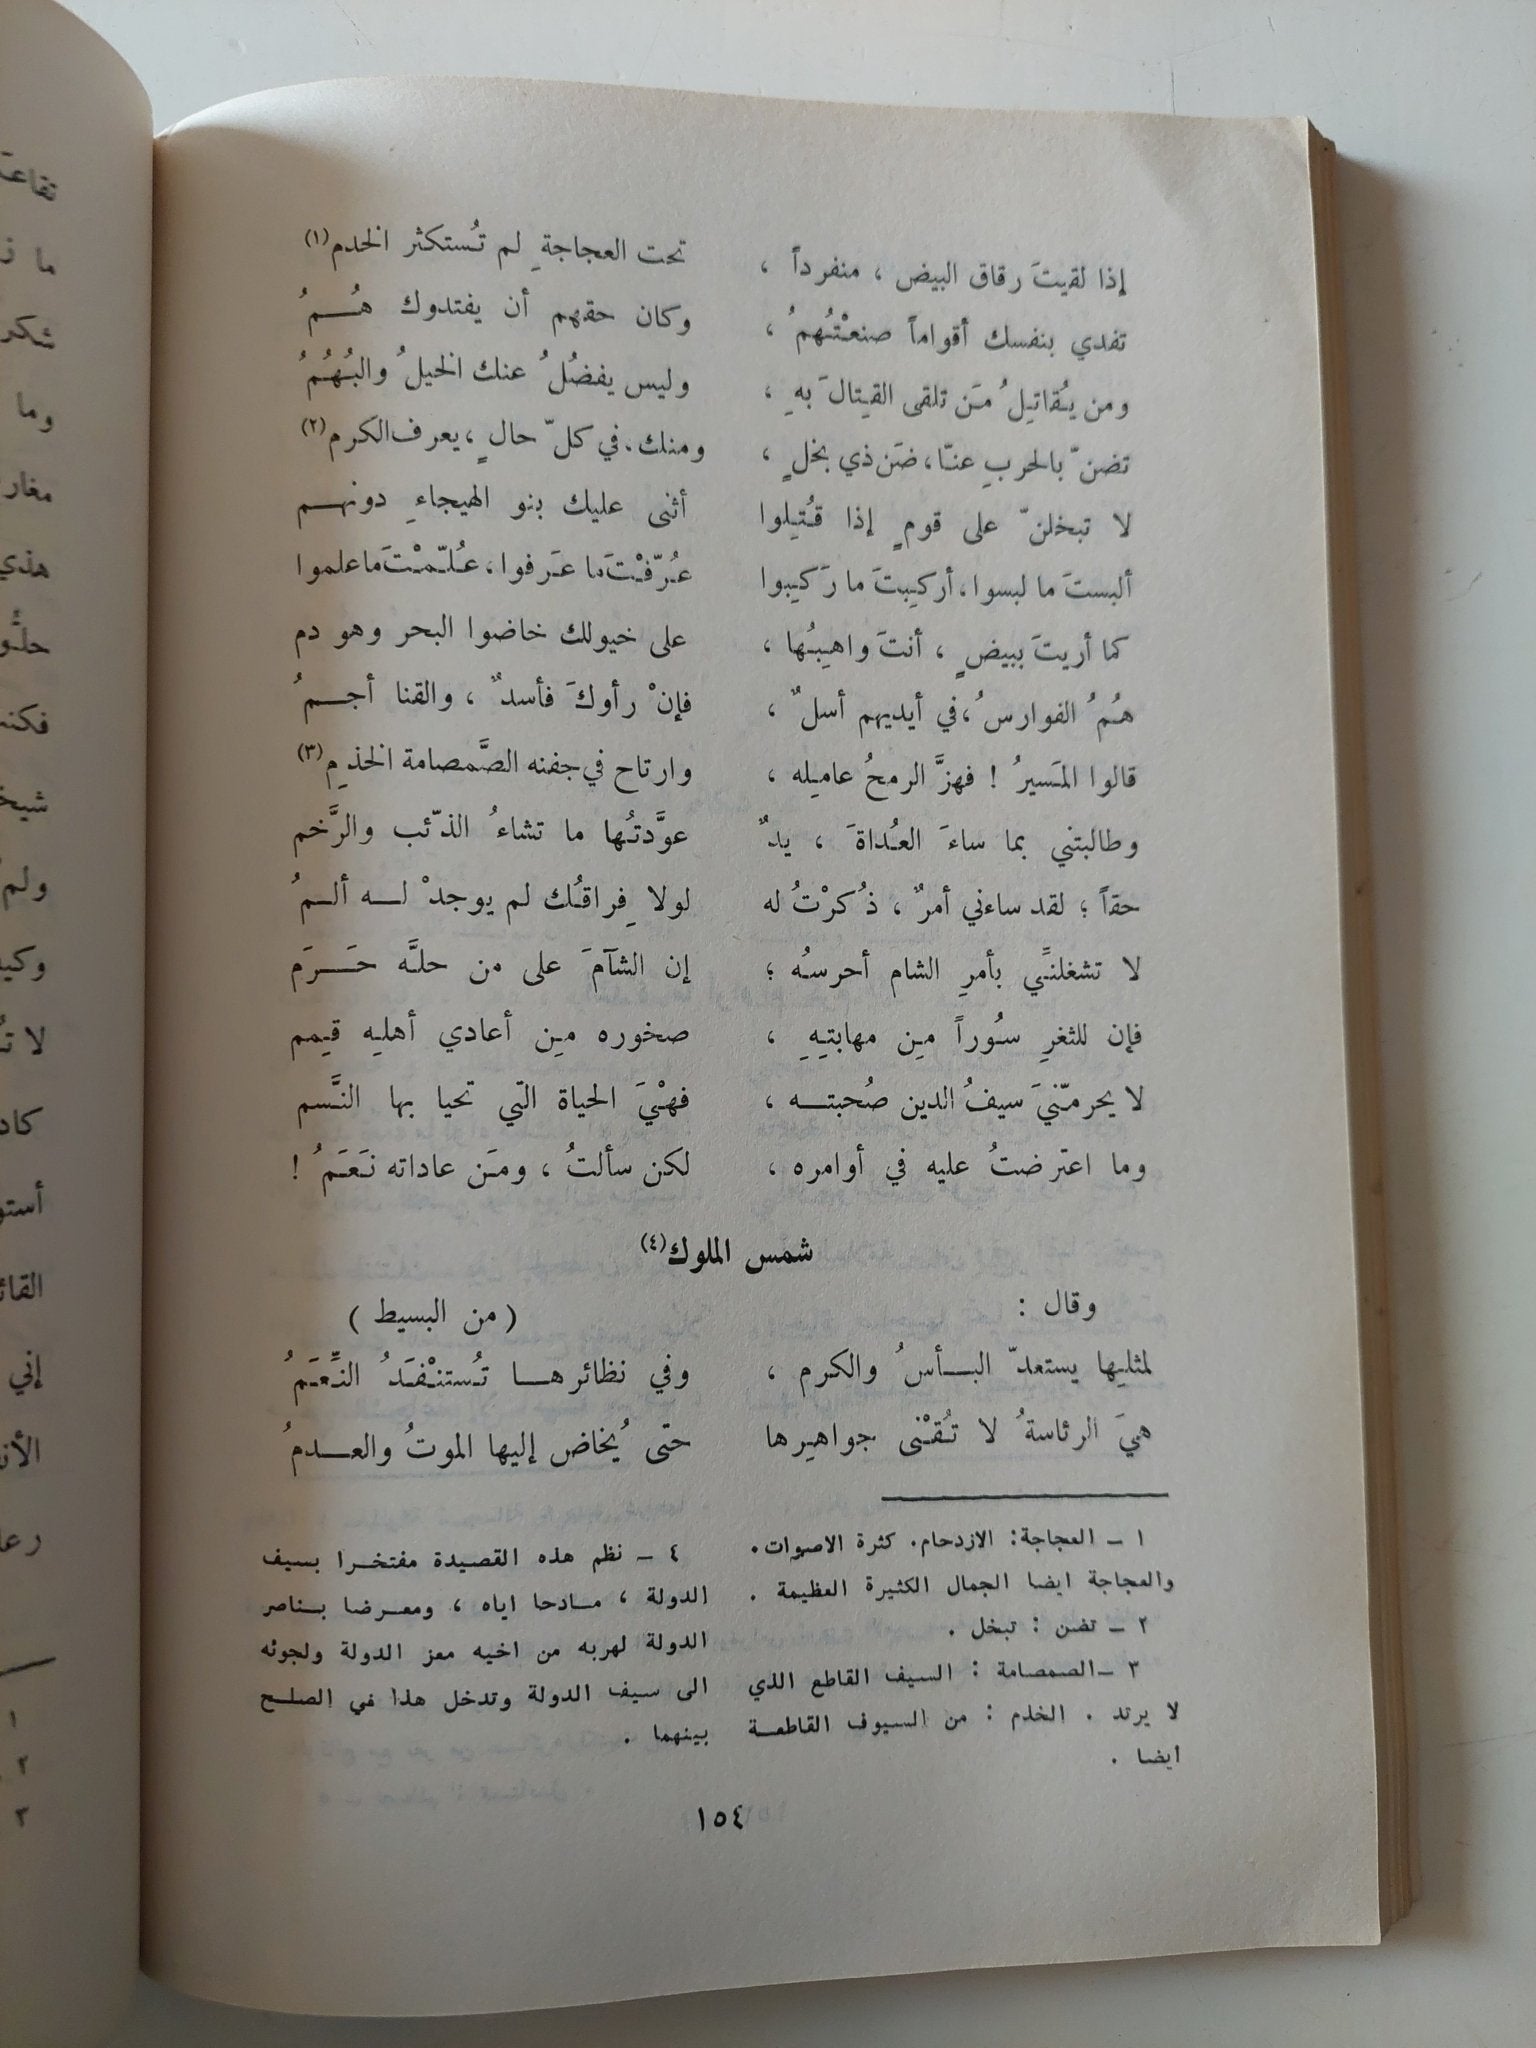 إذا لقيتَ رقاق البيض ، منفرداً ، تحت العجاجةِ لم تُستكثر الخدم(١)
تفدي بنفسك أقواماً صنعْتُهمُ ، وكان حقهم أن يفتدوك هُمُ
ومن يُقاتِلُ مَن تلقى القِتالَ بهِ ، وليس يفضُلُ عنك الخيلُ والبُهُمُ
تضنّ بالحربِ عنّا، ضَن ذي بخلٍ ، ومنك. في كلّ حالٍ ، يعرف الكرم(٢)
لا تبخلنّ على قومٍ إذا قُتِلوا أثنى عليك بنو الهيجاءِ دونهم
ألبستَ ما لبسوا، أركِبتَ ما رَكِبوا عُرّفْتَ ما عَرفوا، عُلّمْتَ ما علموا
كما أريتَ ببيضٍ ، أنتَ واهِبُها ، على خيولك خاضوا البحر وهو دم
هُمُ الفوارسُ، في أيديهم أسلٌ ، فإنْ رأوكَ فأسدٌ ، والقنا أجمُ
قالوا المَسيرُ ! فهزَّ الرمحُ عامِله ، وارتاح في جفنه الصَّمصامة الخذِم(٣)
وطالبتني بما ساءَ العُداةَ ، يدٌ عوَّدتُها ما تشاءُ الذّئب والرَّخم
حقاً ؛ لقد ساءني أمرٌ ، ذُكرْتُ له لولا فِراقُك لم يوجدْ له ألمُ
لا تشغلنِّي بأمرِ الشام أحرسُه ؛ إن الشآمَ على من حلَّه حَرَم
فإن للثغرِ سُوراً مِن مهابتِهِ ، صخوره مِن أعادي أهلِه قِمم
لا يحرمّنيَ سيفُ الدين صُحبته ، فهْيَ الحياة التي تحيا بها النَّسم
وما اعترضتُ عليه في أوامره ، لكن سألتُ ، ومَن عاداته نَعَمُ !
شمس الملوك(٤)
وقال : ( من البسيط )
لمثلِها يستعدّ البأسُ والكرم ، وفي نظائرها تُستنْفَدُ النِّعَمُ
هيَ الرئاسةُ لا تُقْنى جواهِرها حتى يُخاض إليها الموتُ والعدمُ
١ ـ العجاجة: الازدحام. كثرة الاصوات.
والعجاجة ايضا الجمال الكثيرة العظيمة .
٢ ـ تضن : تبخل .
٣ ـ الصمصامة : السيف القاطع الذي
لا يرتد . الخذم : من السيوف القاطعة
ايضا .
٤ ـ نظم هذه القصيدة مفتخرا بسيف
الدولة ، مادحا اياه ، ومعرضا بناصر
الدولة لهربه من اخيه معز الدولة ولجوئه
الى سيف الدولة وتدخل هذا في الصلح
بينهما .
١٥٤